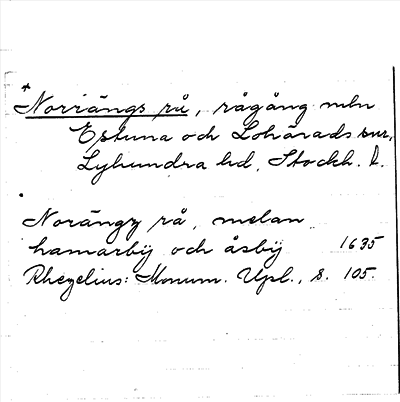 *Norrängs rå, rågång mln
Estuna och Lohärads snr,
Lyhundra hd, Stockh. l.
Norängz rå, melan
hamarbÿ och åsbÿ 1635
Rhezelius: Monum. Upl., s. 105.